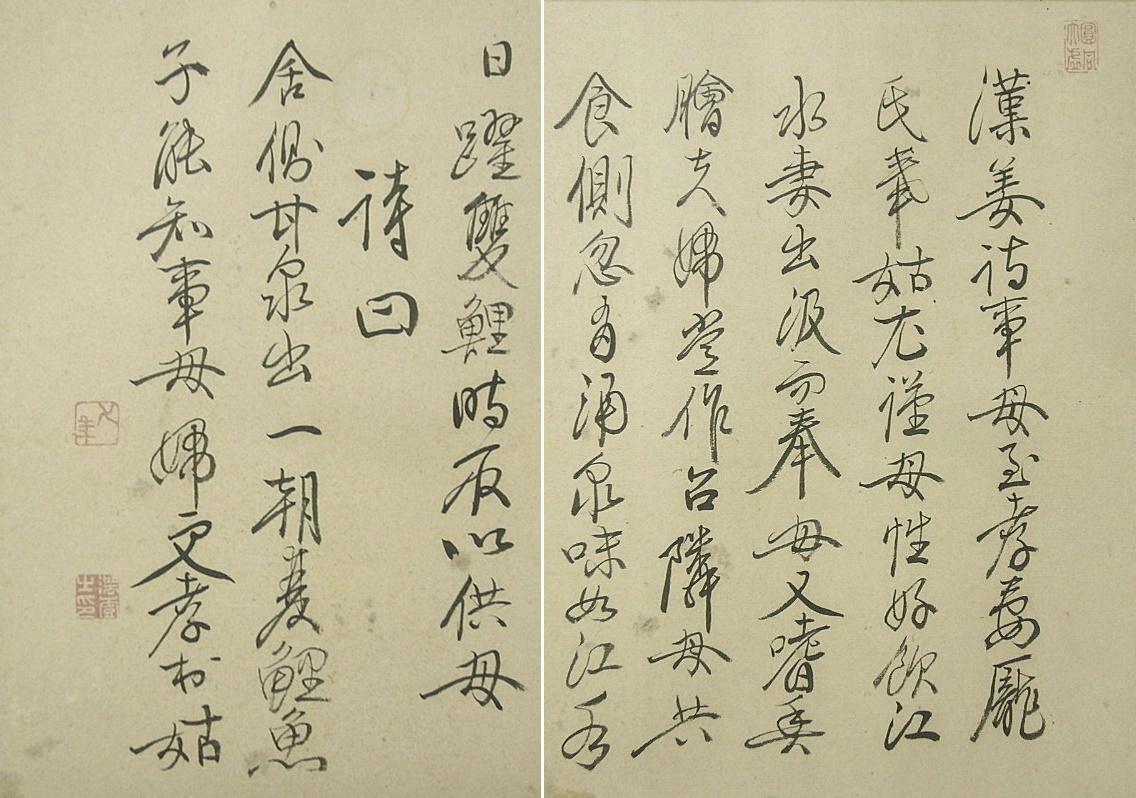 圓同太虛
漢姜詩事母至孝妻龐
氏奉姑尤謹母性好飲江
水妻出汲而奉母又嗜魚
膾夫婦常作召隣母共
食側忽有涌泉味如江水
日躍雙鯉時取以供母
詩曰
舍側甘泉出一朝雙鯉魚
子能知事母婦更孝於姑